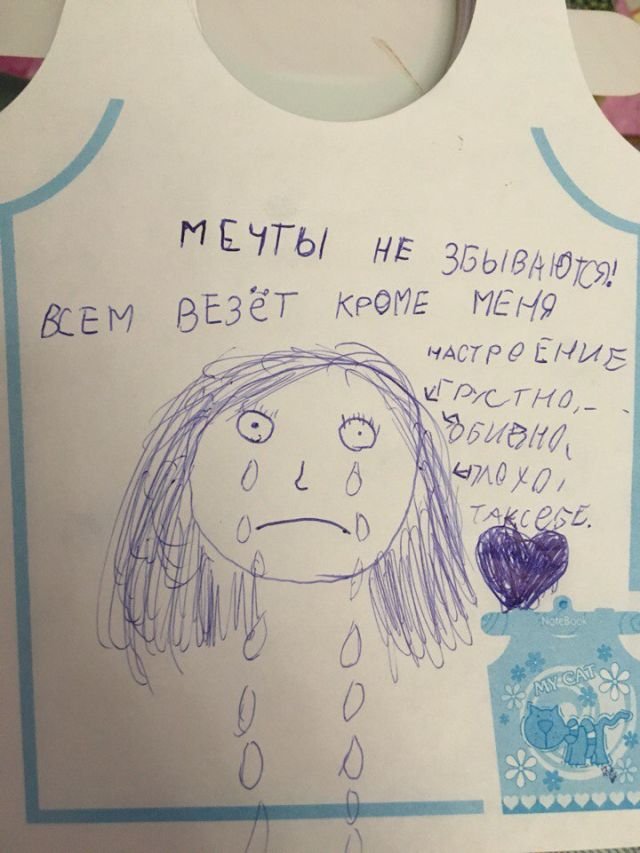 МЕЧТЫ НЕ ЗБЫВАЮТСЯ!
ВСЕМ ВЕЗЁТ КРОМЕ МЕНЯ
НАСТРОЕНИЕ
ГРУСТНО,
ОБИВНО,
ПЛОХО,
ТАКСЕБЕ.
NoteBook
MY CAT